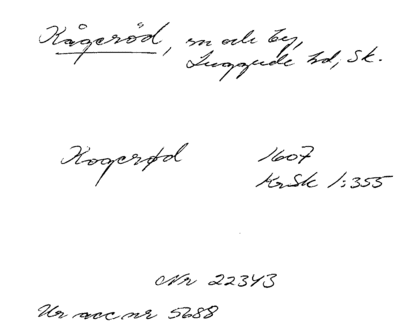 Kågeröd, sn och by,
Luggude hd, Sk.
Kogerød 1607
KrSk 1:355
Nr 22343
Ur acc nr 5688